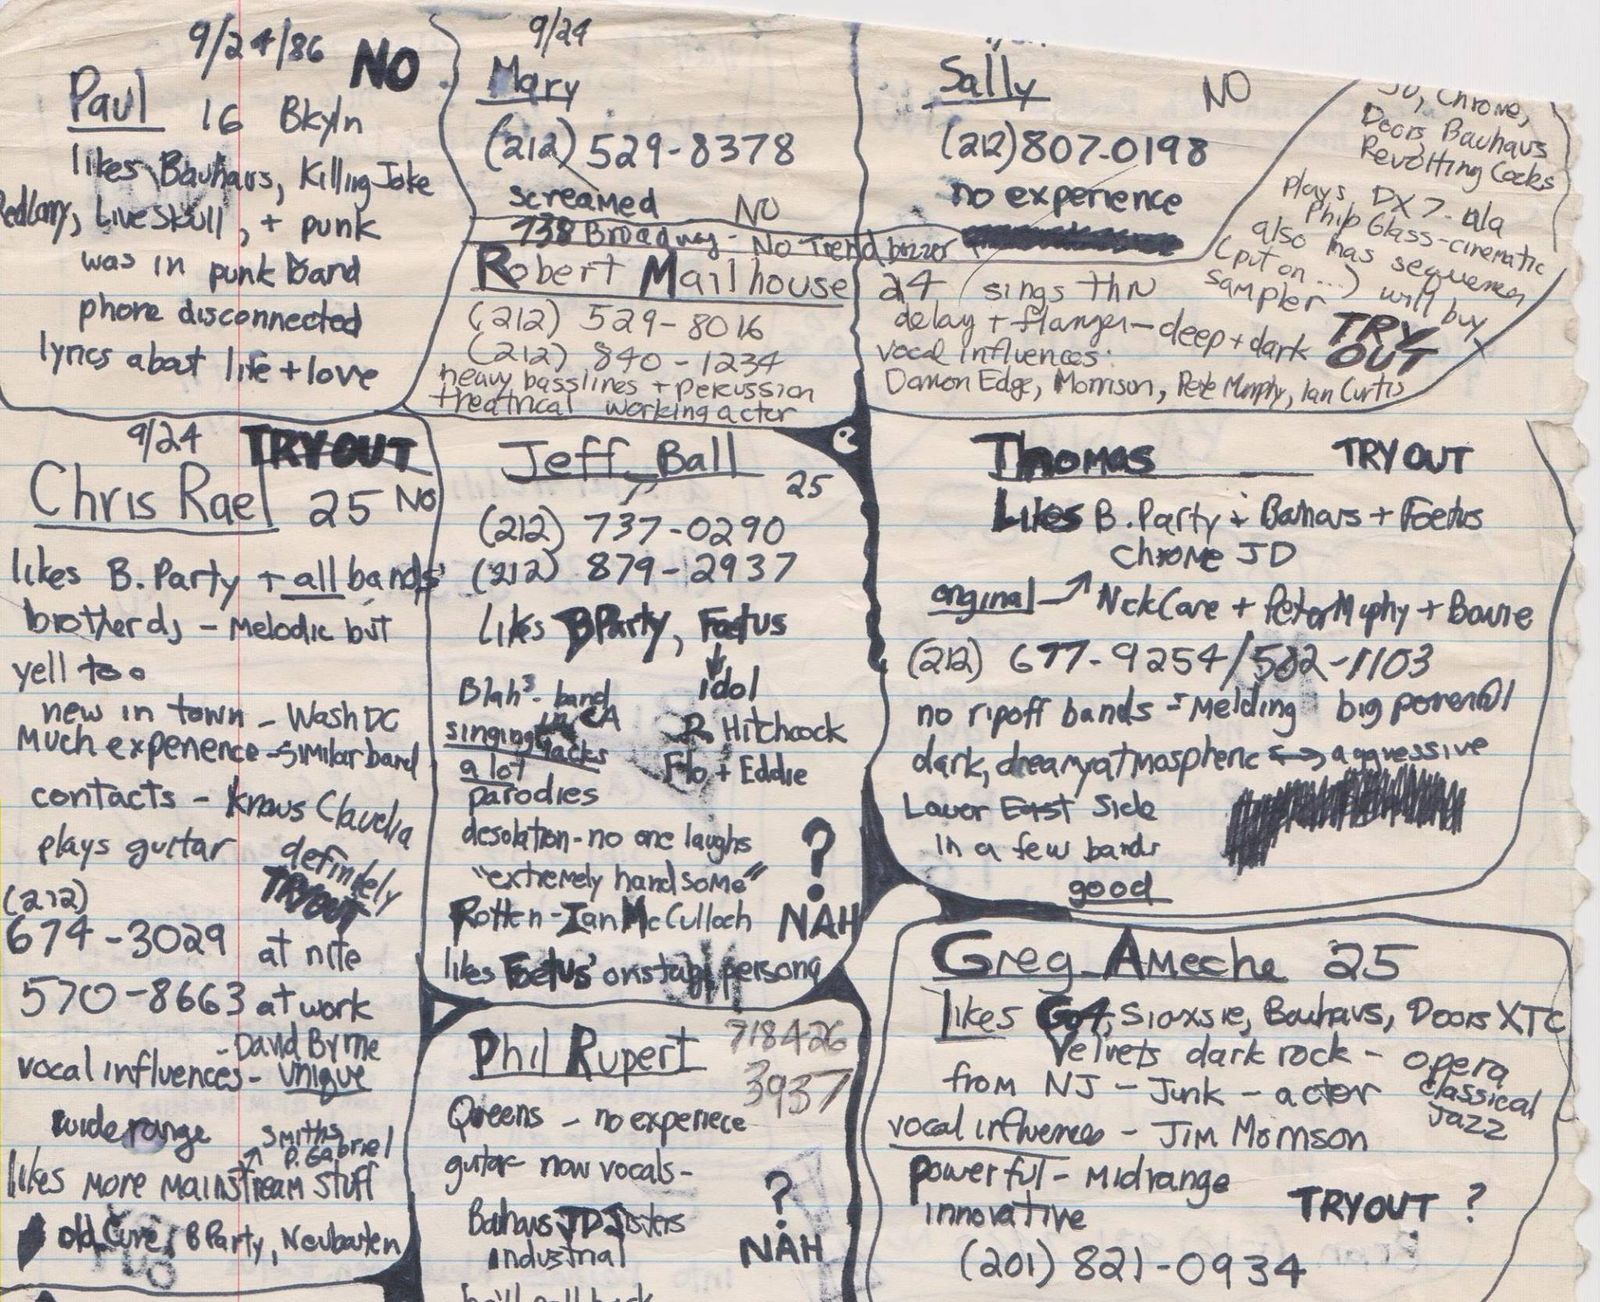 9/24/86 NO
Paul 16 Bkyln
likes Bauhaus, Killing Joke
Redlorry, Live Skull, + punk
was in punk band
phone disconnected
lyrics about life + love
9/24
Mary
(212) 529-8378
screamed NO
738 Broadway - No Trend
Sally NO
(212) 807-0198
no experience
Robert Mailhouse
(212) 529-8016
(212) 840-1234
heavy basslines + percussion
theatrical working actor
24 sings thru
delay + flanger - deep + dark
vocal influences:
Damon Edge, Morrison, Pete Murphy, Ian Curtis
JD, Chrome,
Doors, Bauhaus
Revolting Cocks
plays DX7 - ala
Philip Glass - cinematic
also has sequencer
(put on ...) will buy
sampler
TRY
OUT
9/24 TRY OUT
Chris Rael 25 NO
likes B. Party + all bands
brother dj - melodic but
yell too
new in town - Wash DC
Much experience - similar band
contacts - knows Claudia
plays guitar
definitely
TRYOUT
(212)
674-3029 at nite
570-8663 at work
- David Byrne
vocal influences - unique
wide range
Smiths
P. Gabriel
likes more mainstream stuff
old Cure, B Party, Neubauten
Jeff Ball
25
(212) 737-0290
(212) 879-2937
Likes BParty, Foetus
Idol
Blah³ - band
in CA
R Hitchcock
singing lacks
Flo + Eddie
a lot
parodies
desolation - no one laughs
"extremely handsome"
Rotten - Ian McCulloch
likes Foetus' onstage persona
?
NAH
Thomas TRY OUT
Likes B. Party + Bauhaus + Foetus
Chrome JD
original Nick Cave + Peter Murphy + Bowie
(212) 677-9254/582-1103
no ripoff bands - melding big powerful
dark, dreamy atmospheric <-> aggressive
Lower East Side
in a few bands
good
Phil Rupert 718 426
3937
Queens - no experiece
guitar - now vocals -
Bauhaus JD Sisters
industrial
he'll call back
?
NAH
Greg Ameche 25
Likes Go4, Sioxsie, Bauhaus, Doors XTC
Velvets dark rock - opera
classical
Jazz
from NJ - Junk - actor
vocal influences - Jim Morrison
powerful - midrange
innovative
TRYOUT ?
(201) 821-0934